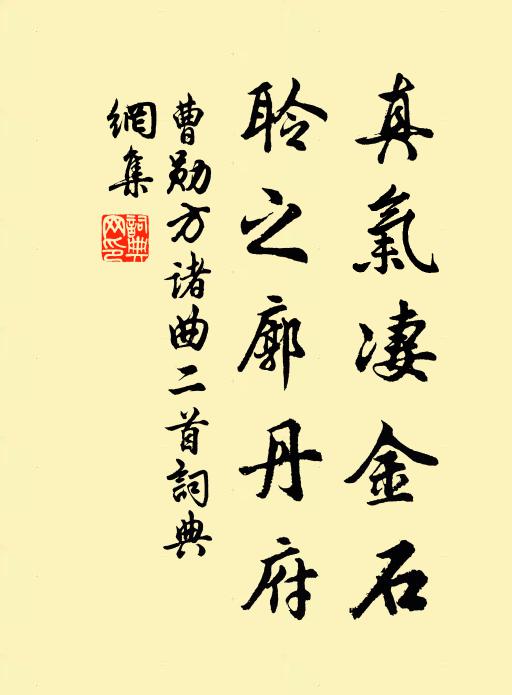 真氣凄金石
聆之廓丹府
曹勛方诸曲二首詞典
網集
詞典网印